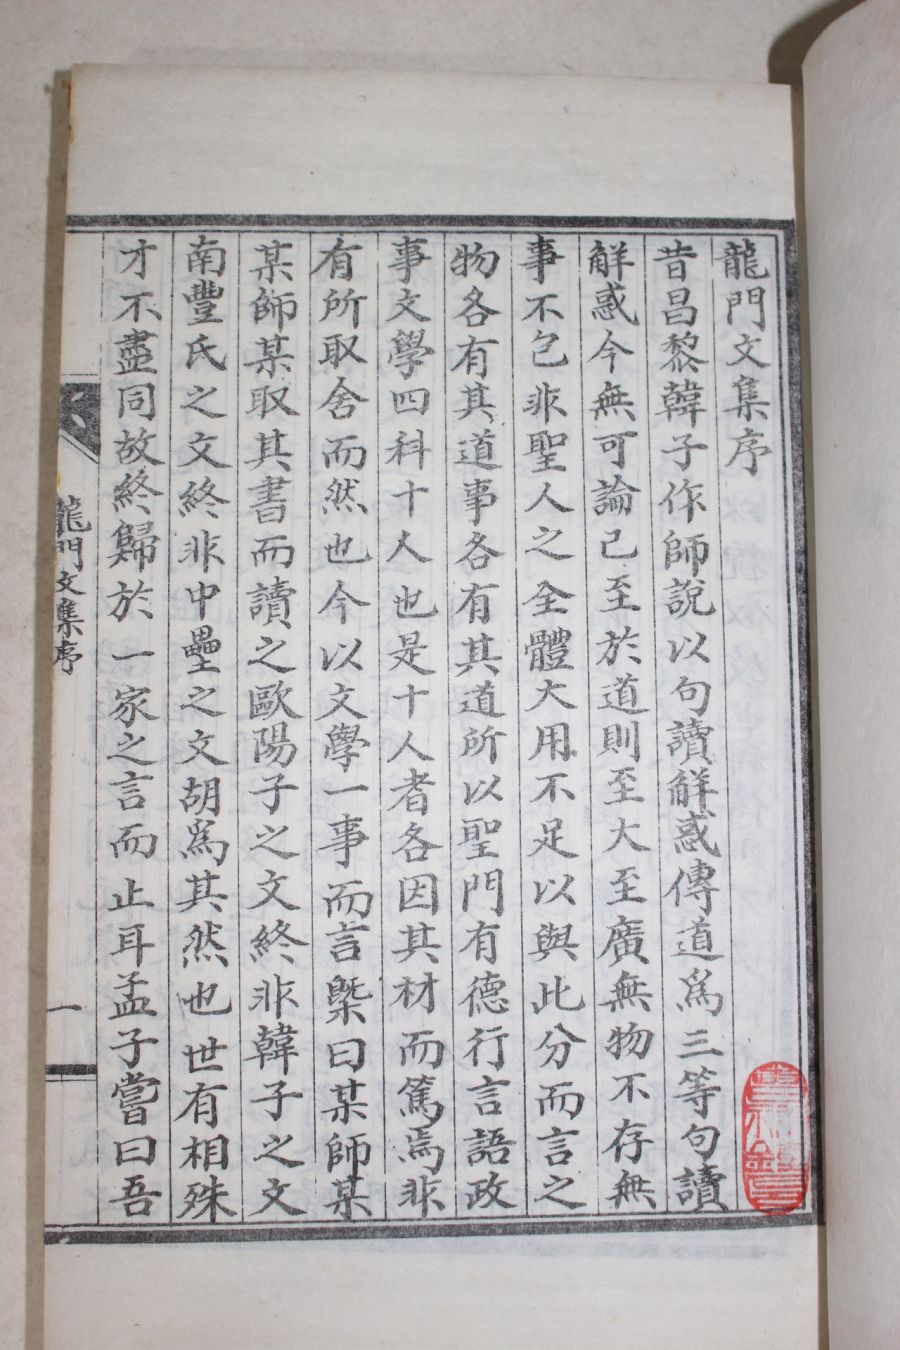 龍門文集序
昔昌黎韓子作師說以句讀解惑傳道爲三等句讀
解惑今無可論已至於道則至大至廣無物不存無
事不包非聖人之全體大用不足以與此分而言之
物各有其道事各有其道所以聖門有德行言語政
事文學四科十人也是十人者各因其材而篤焉非
有所取舍而然也今以文學一事而言槩曰某師某
某師某取其書而讀之歐陽子之文終非韓子之文
南豐氏之文終非中壘之文胡爲其然也世有相殊
才不盡同故終歸於一家之言而止耳孟子嘗曰吾
龍門文集序
一